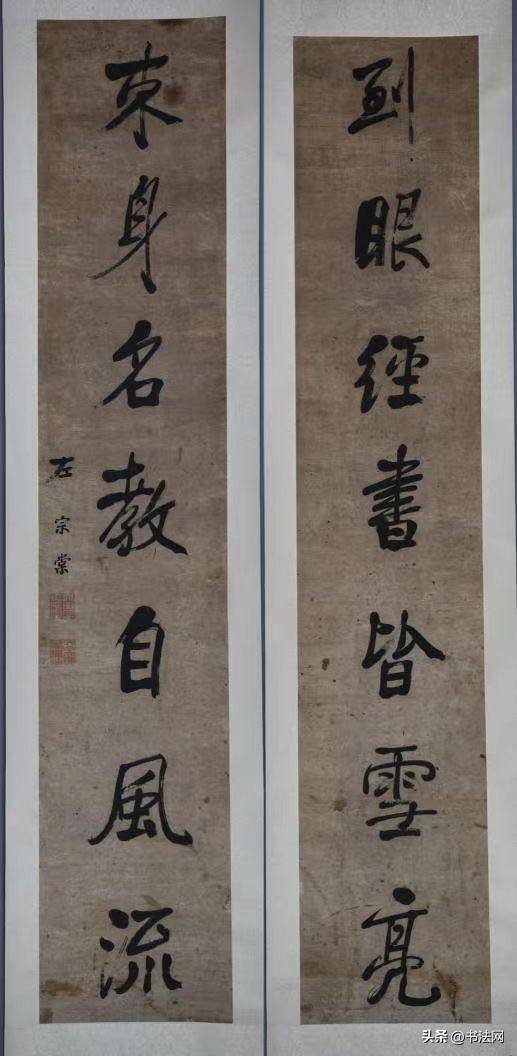 到眼經書皆雪亮
束身名教自風流
左宗棠
头条 @书法网